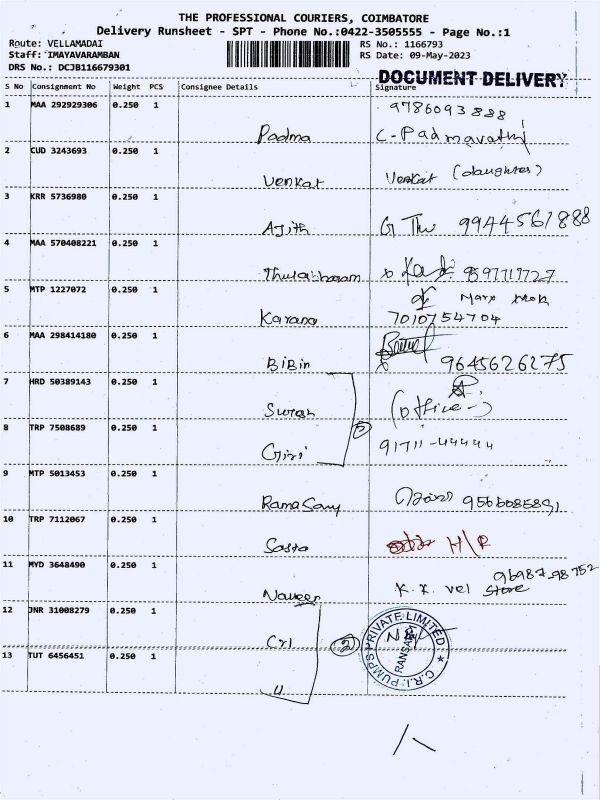 THE PROFESSIONAL COURIERS, COIMBATORE
Delivery Runsheet - SPT - Phone No.:0422-3505555 - Page No.:1
Route: VELLAMADAI RS No.: 1166793
Staff: IMAYAVARAMBAN RS Date: 09-May-2023
DRS No.: DCJB116679301
DOCUMENT DELIVERY
S No Consignment No Weight PCS Consignee Details Signature
1 MAA 292929306 0.250 1
9786093888
Padma C. Padmavathi
2 CUD 3243693 0.250 1
Venkat Venkat (daughter)
3 KRR 5736980 0.250 1
Ajith 9944561888
4 MAA 570408221 0.250 1
8597717727
5 MTP 1227072 0.250 1
Karana 7010754704
6 MAA 298414180 0.250 1
BiBin 9645626275
7 HRD 50389143 0.250 1
Suresh (office-)
8 TRP 7508689 0.250 1
Giri 91711-44444
2
9 MTP 5013453 0.250 1
RamaSamy 9566085891
10 TRP 7112067 0.250 1
Sasta H/R
11 MYD 3648490 0.250 1
96987 98752
Naveen K.K. vel Store
12 JNR 31008279 0.250 1
CrI 2
C.R.I. PUMPS PRIVATE LIMITED
13 TUT 6456451 0.250 1
u